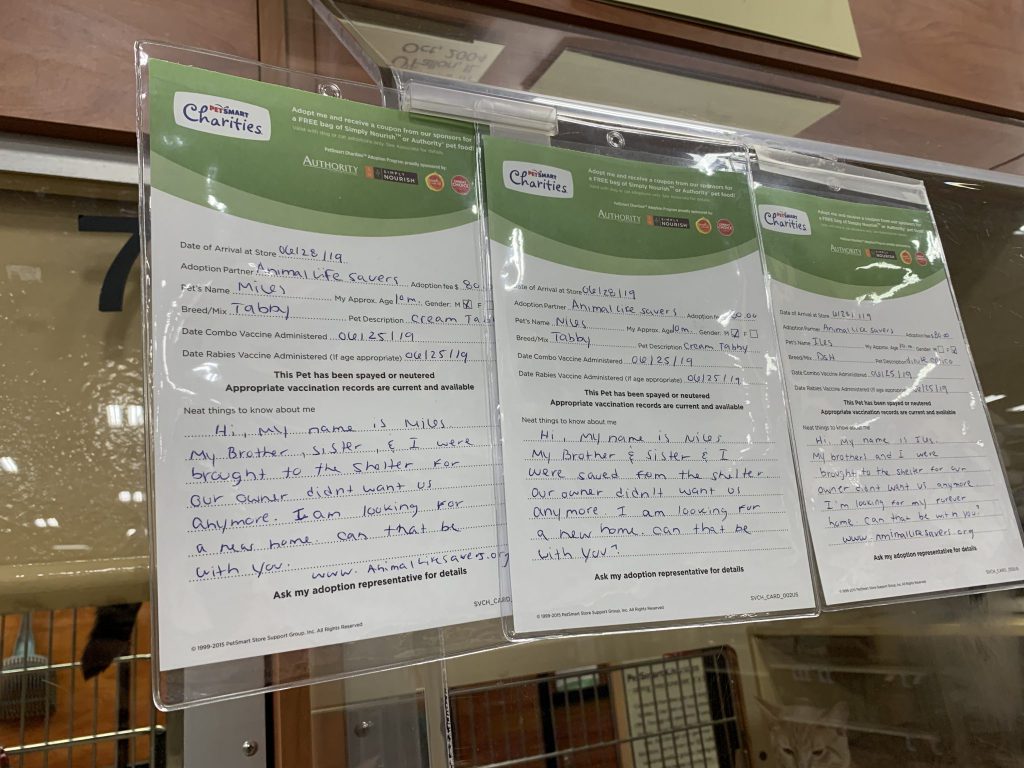 Oct, 2004
7
PETSMART
Charities
Adopt me and receive a coupon from our sponsors for
a FREE bag of Simply Nourish™ or Authority® pet food!
Valid with dog or cat adoptions only. See associate for details.
PetSmart Charities™ Adoption Program proudly sponsored by:
AUTHORITY SIMPLY NOURISH
Date of Arrival at Store 06/28/19
Adoption Partner Animal Life savers Adoption fee $ 80
Pet's Name Miles My Approx. Age 10m. Gender: M F
Breed/Mix Tabby Pet Description Cream
Date Combo Vaccine Administered 06/25/19
Date Rabies Vaccine Administered (If age appropriate) 06/25/19
This Pet has been spayed or neutered
Appropriate vaccination records are current and available
Neat things to know about me
Hi, My name is Miles
My Brother, sister, & I were
brought to the shelter for
our owner didnt want us
anymore. I am looking for
a new home. can that be
with you. www.AnimalLifesavers.org
Ask my adoption representative for details
SVCH_CARD_
© 1999-2015 PetSmart Store Support Group, Inc. All Rights Reserved
PETSMART
Charities
Adopt me and receive a coupon from our sponsors for
a FREE bag of Simply Nourish™ or Authority® pet food!
Valid with dog or cat adoptions only. See associate for details.
PetSmart Charities™ Adoption Program proudly sponsored by:
AUTHORITY SIMPLY NOURISH
Date of Arrival at Store 06/28/19
Adoption Partner Animal Life savers Adoption fee 80.00
Pet's Name Niles My Approx. Age 10m. Gender: M F
Breed/Mix Tabby Pet Description Cream Tabby
Date Combo Vaccine Administered 06/25/19
Date Rabies Vaccine Administered (If age appropriate) 06/25/19
This Pet has been spayed or neutered
Appropriate vaccination records are current and available
Neat things to know about me
Hi, My name is Niles
My Brother & Sister & I
were saved from the shelter
our owner didn't want us
anymore I am looking for
a new home. can that be
with you?
Ask my adoption representative for details
SVCH_CARD_002US
© 1999-2015 PetSmart Store Support Group, Inc. All Rights Reserved
PETSMART
Charities
Adopt me and receive a coupon from our sponsors for
a FREE bag of Simply Nourish™ or Authority® pet food!
AUTHORITY
Date of Arrival at Store 6/28/19
Adoption Partner Animal Life savers Adoption fee $ 80.00
Pet's Name Iles My Approx. Age 10.m. Gender: M F
Breed/Mix DSH Pet Description
Date Combo Vaccine Administered 06/25/19
Date Rabies Vaccine Administered (If age appropriate) 06/25/19
This Pet has been spayed or neutered
Appropriate vaccination records are current and available
Neat things to know about me
Hi, My name is Iles.
My brothers and I were
brought to the shelter for our
owner didnt want us anymore
I'm looking for my furever
home. can that be with you?
www.animallifesavers.org
Ask my adoption representative for details
SVCH_CARD_002US
© 1999-2015 PetSmart Store Support Group, Inc. All Rights Reserved